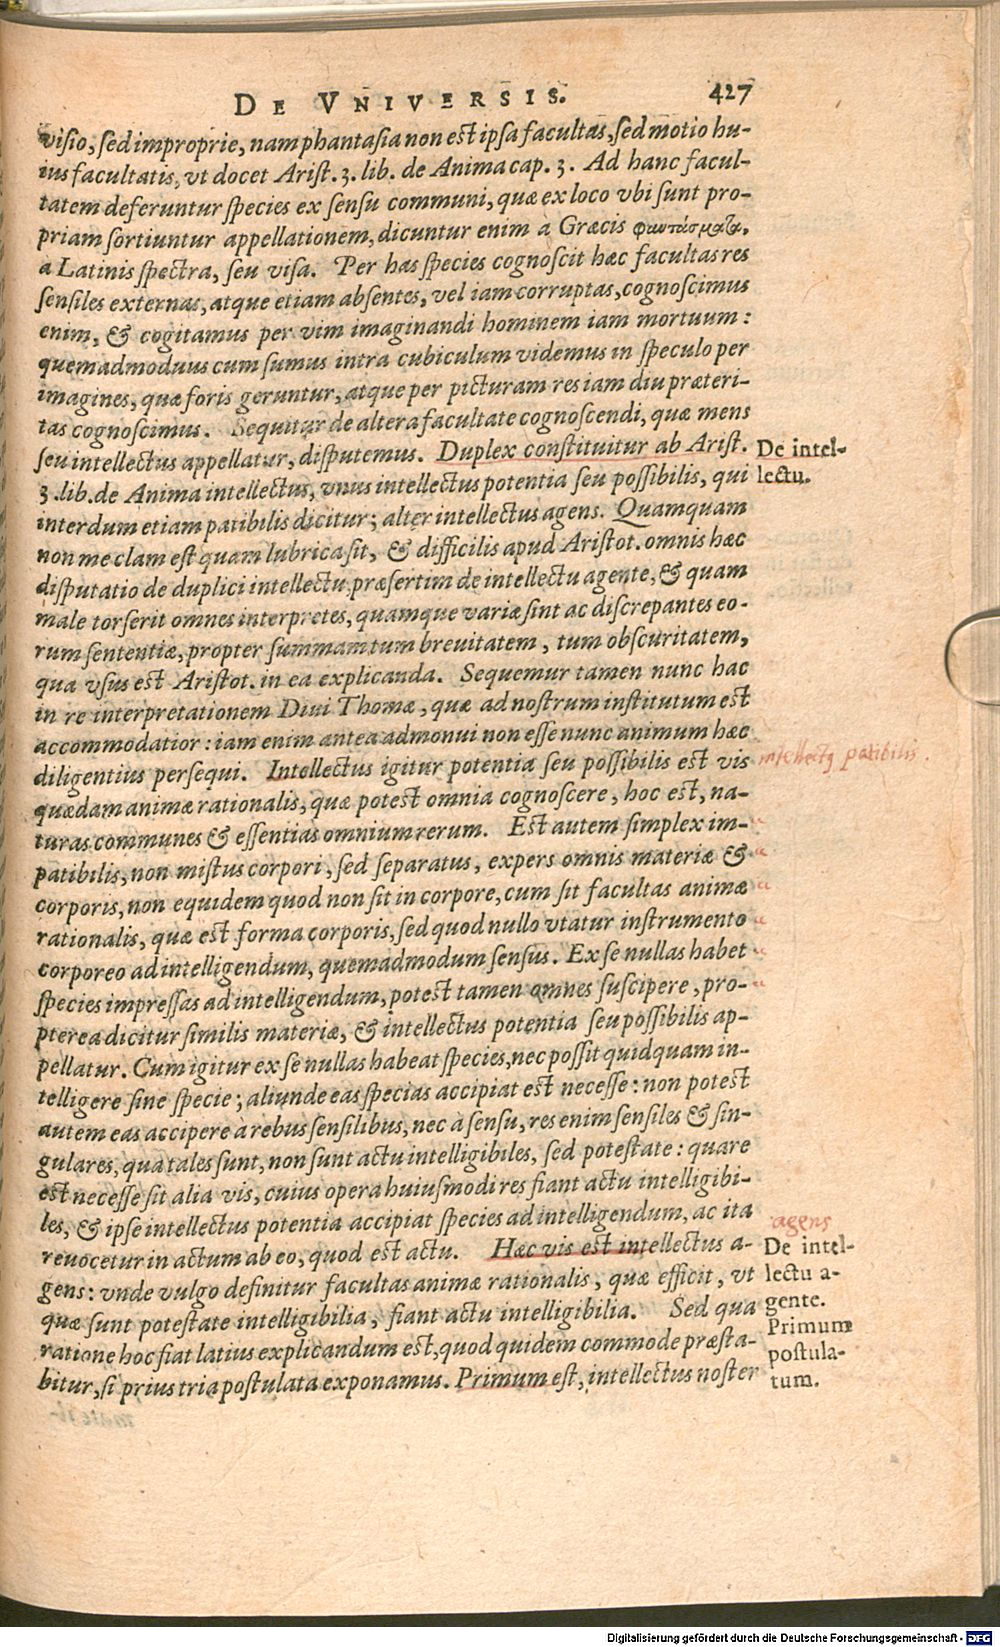 DE VNIVERSIS. 427
visio, sed improprie, nam phantasia non est ipsa facultas, sed motio hu-
ius facultatis, vt docet Arist. 3. lib. de Anima cap. 3. Ad hanc facul-
tatem deferuntur species ex sensu communi, quæ ex loco vbi sunt pro-
priam sortiuntur appellationem, dicuntur enim à Græcis φαντάσματα,
a Latinis spectra, seu visa. Per has species cognoscit hæc facultas res
sensiles externas, atque etiam absentes, vel iam corruptas, cognoscimus
enim, & cogitamus per vim imaginandi hominem iam mortuum:
quemadmoduus cum sumus intra cubiculum videmus in speculo per
imagines, quæ foris geruntur, atque per picturam res iam diu præteri-
tas cognoscimus. Sequitur de altera facultate cognoscendi, quæ mens
seu intellectus appellatur, disputemus. Duplex constituitur ab Arist.
De intel-
lectu.
3. lib. de Anima intellectus, vnus intellectus potentia seu possibilis, qui
interdum etiam patibilis dicitur; alter intellectus agens. Quamquam
non me clam est quam lubrica sit, & difficilis apud Aristot. omnis hæc
disputatio de duplici intellectu, præsertim de intellectu agente, & quam
male torserit omnes interpretes, quamque variæ sint ac discrepantes eo-
rum sententiæ, propter summam tum breuitatem, tum obscuritatem,
qua vsus est Aristot. in ea explicanda. Sequemur tamen nunc hac
in re interpretationem Diui Thomæ, quæ ad nostrum institutum est
accommodatior: iam enim antea admonui non esse nunc animum hæc
diligentius persequi. Intellectus igitur potentia seu possibilis est vis
intellectus patibilis.
quædam animæ rationalis, quæ potest omnia cognoscere, hoc est, na-
turas communes & essentias omnium rerum. Est autem simplex im-
patibilis, non mistus corpori, sed separatus, expers omnis materiæ &
corporis, non equidem quod non sit in corpore, cum sit facultas animæ
rationalis, quæ est forma corporis, sed quod nullo vtatur instrumento
corporeo ad intelligendum, quemadmodum sensus. Ex se nullas habet
species impressas ad intelligendum, potest tamen omnes suscipere, pro-
pterea dicitur similis materiæ, & intellectus potentia seu possibilis ap-
pellatur. Cum igitur ex se nullas habeat species, nec possit quidquam in-
telligere sine specie; aliunde eas specias accipiat est necesse: non potest
autem eas accipere a rebus sensilibus, nec a sensu, res enim sensiles & sin-
gulares, qua tales sunt, non sunt actu intelligibiles, sed potestate: quare
est necesse sit alia vis, cuius opera huiusmodi res fiant actu intelligibi-
les, & ipse intellectus potentia accipiat species ad intelligendum, ac ita
reuocetur in actum ab eo, quod est actu. Hæc vis est intellectus a-
agens
De intel-
lectu a-
gente.
gens: vnde vulgo definitur facultas animæ rationalis, quæ efficit, vt
quæ sunt potestate intelligibilia, fiant actu intelligibilia. Sed qua
ratione hoc fiat latius explicandum est, quod quidem commode præsta-
bitur, si prius tria postulata exponamus. Primum est, intellectus noster
Primum
postula-
tum.
Digitalisierung gefördert durch die Deutsche Forschungsgemeinschaft - DFG